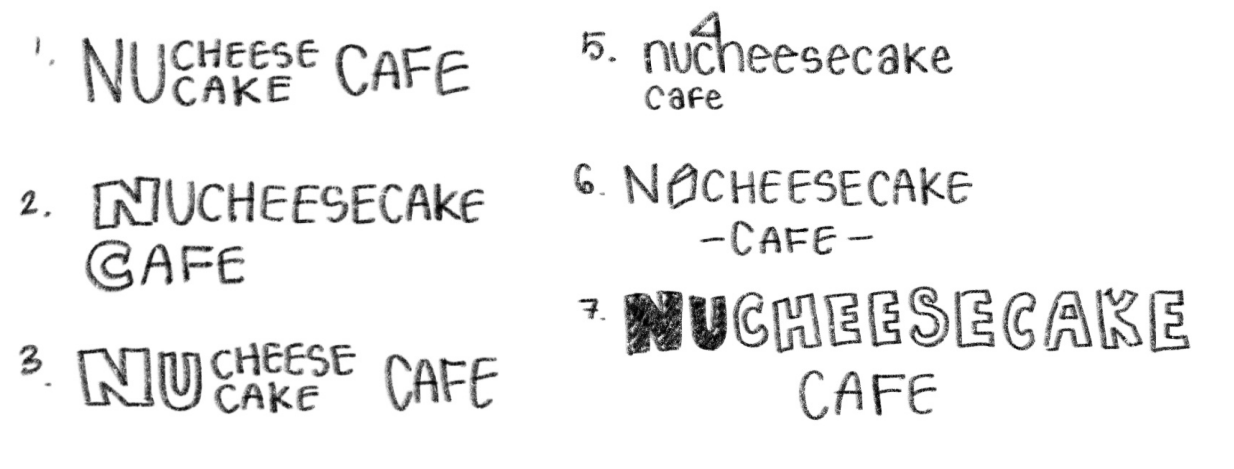 1. NUCHEESE CAFE
CAKE
2. NUCHEESECAKE
CAFE
3. NUCHEESE CAFE
CAKE
5. nucheesecake
cafe
6. NUCHEESECAKE
-CAFE-
7. NUCHEESECAKE
CAFE